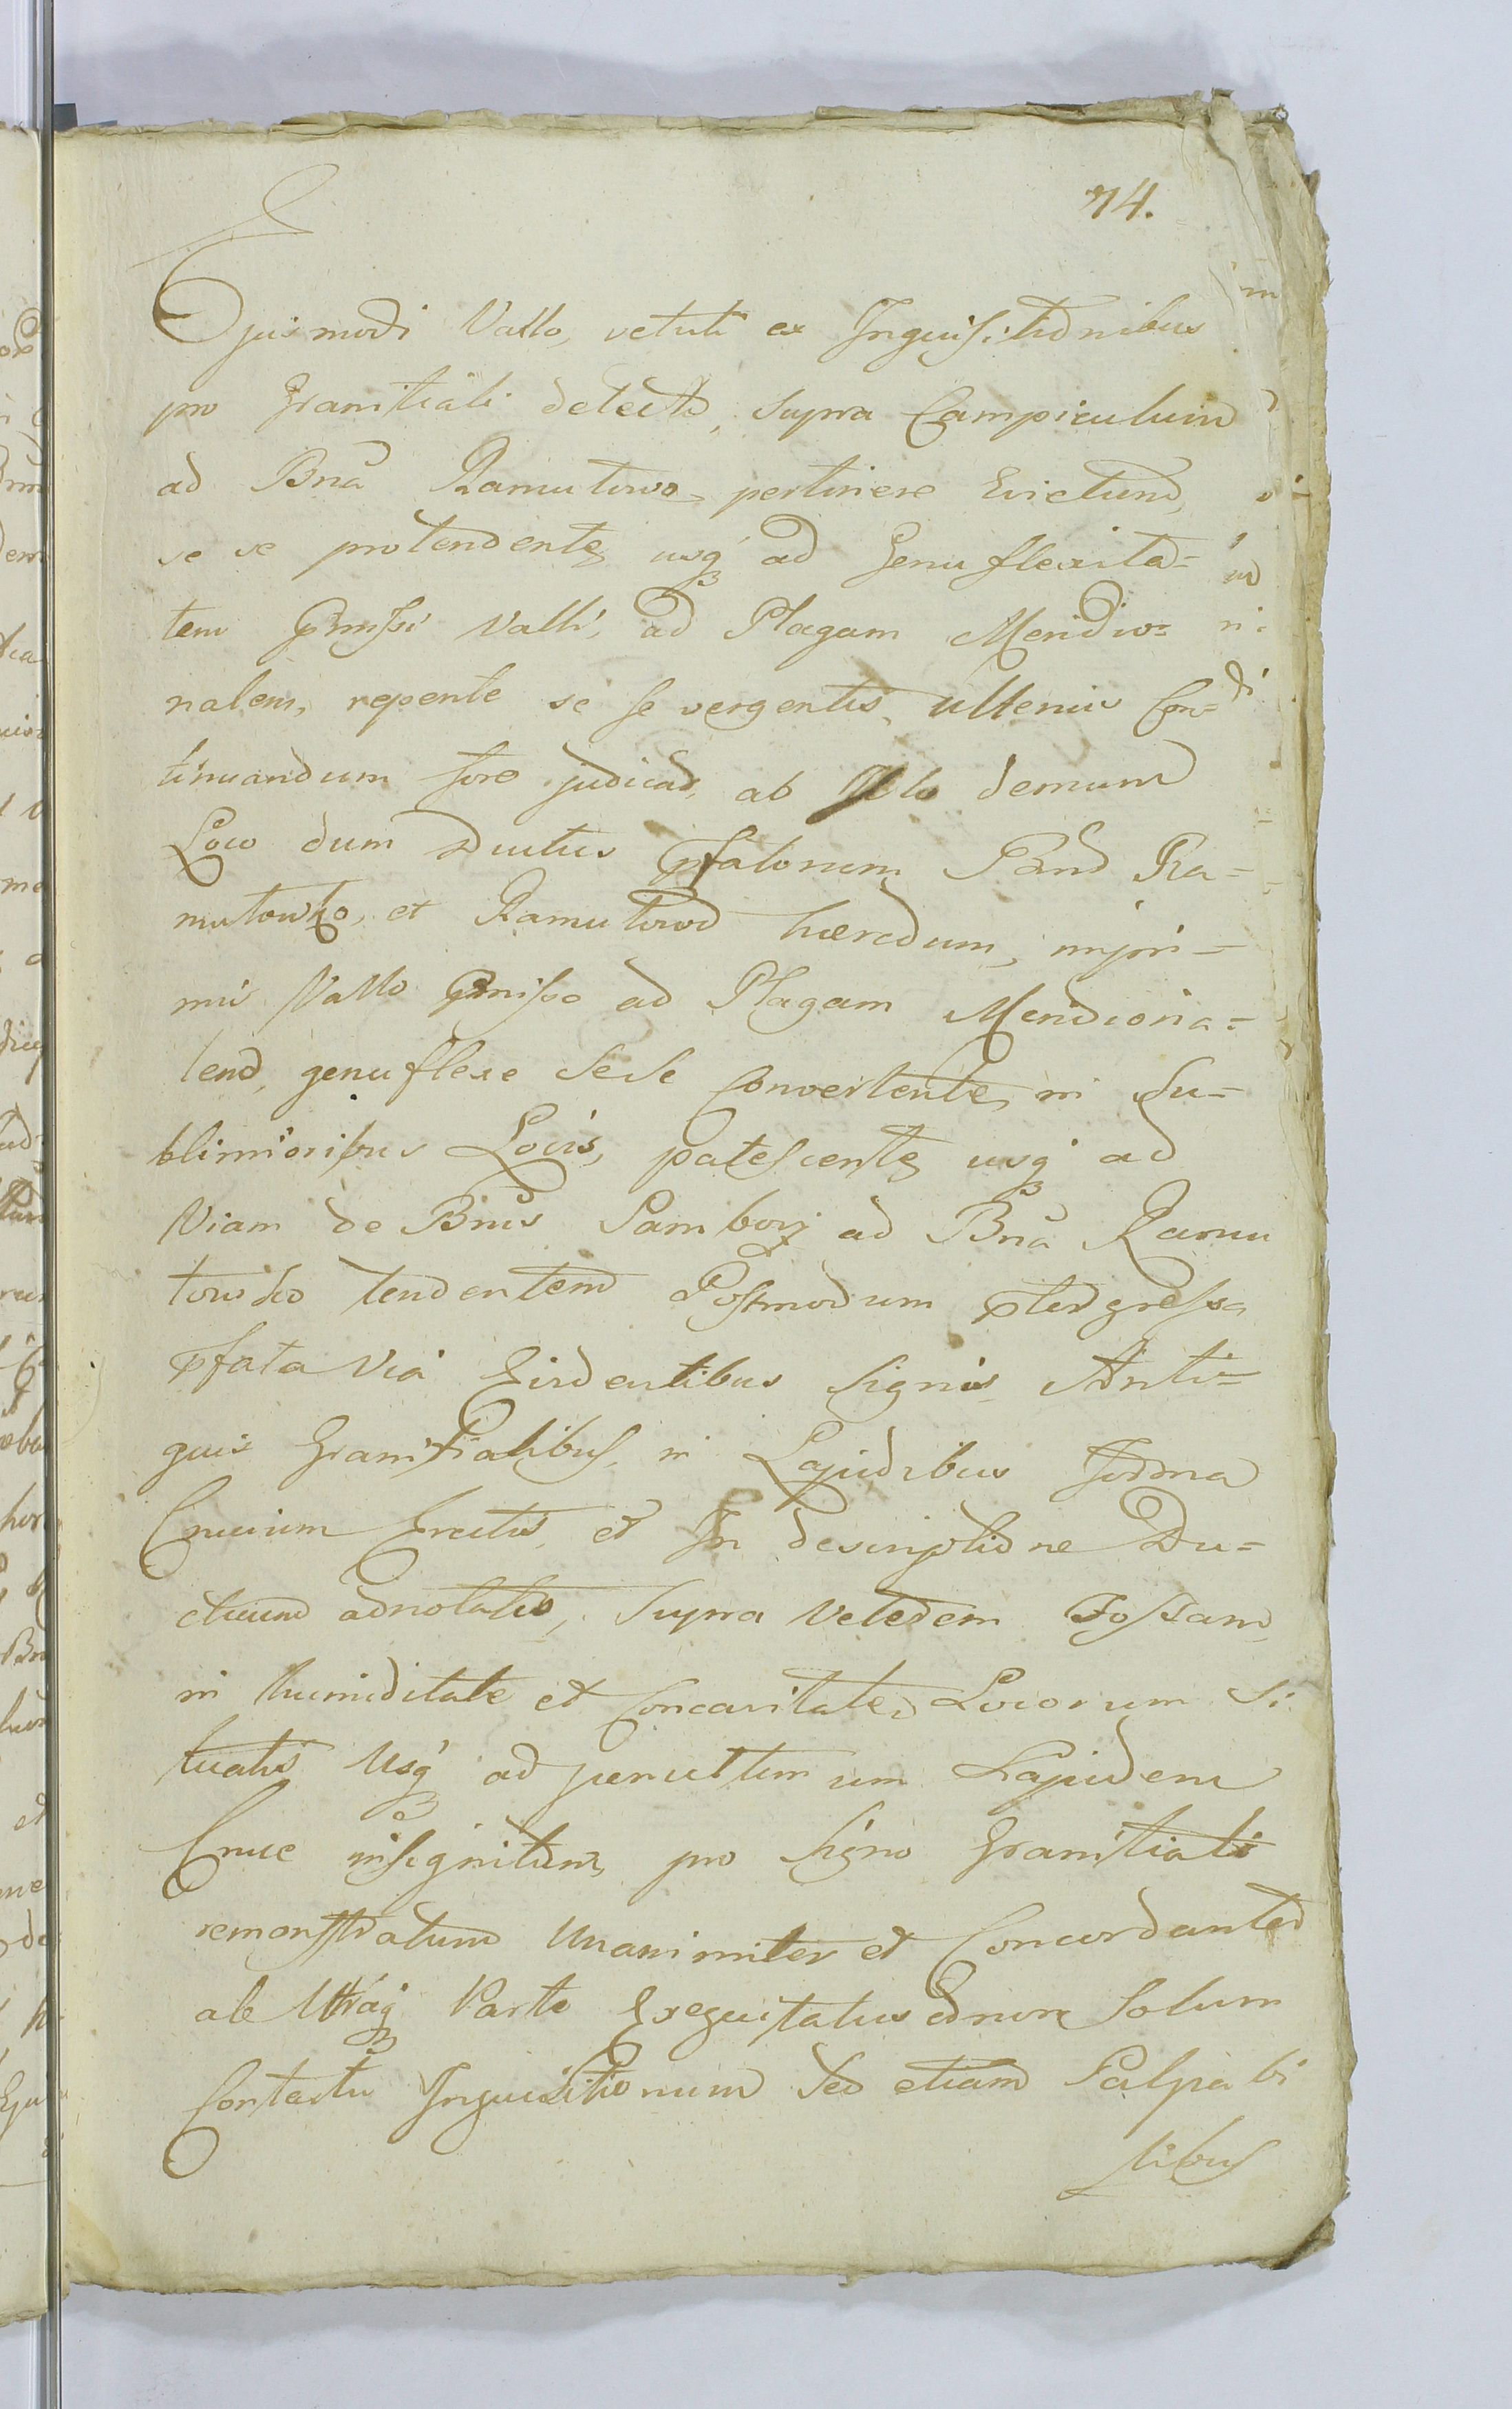 74.
Ejusmodi Vallo, veluti ex Inquisitionibus
pro Granitiali detecto, supra Campiculum
ad Bna Ramutowo pertinere Evictum,
se se protendente, usq ad Genuflexita=
tem Pmissi Valli, ad Plagam Meridio=
nalem, repente se se vergentis, ulterius Con=
tinuandum fore judicat, ab Illo demum
Loco dum Ductus Pfatorum Ra=
mutowko, et Ramutowo hæredum, inpri=
mis Vallo Pmisso ad Plagam Meridiona=
lem, genuflexe sese Convertente, in Su=
blimioribus Locis, patescente, usq ad
Viam de Bnis Sambory ad Bna Ramu
towsko tendentem Postmodum pter gressa
Pfata Via Evidentibus Signis Anti=
quis Granitialibus, in Lapidibus forma
Crucium Erectis, et In descriptione Du=
ctuum adnotatis, Supra Veterem Fossam,
in humiditate et Concavitate Locorum Si
tuatis Usq ad penultimum Lapidem
Cruce insignitum, pro Signo Granitiali
remonstratum Unanimiter et Concordanter
ab Utraq Parte Exequitatus non Solum
Contactu Inquisitionum Sed etiam Palpabi
libus